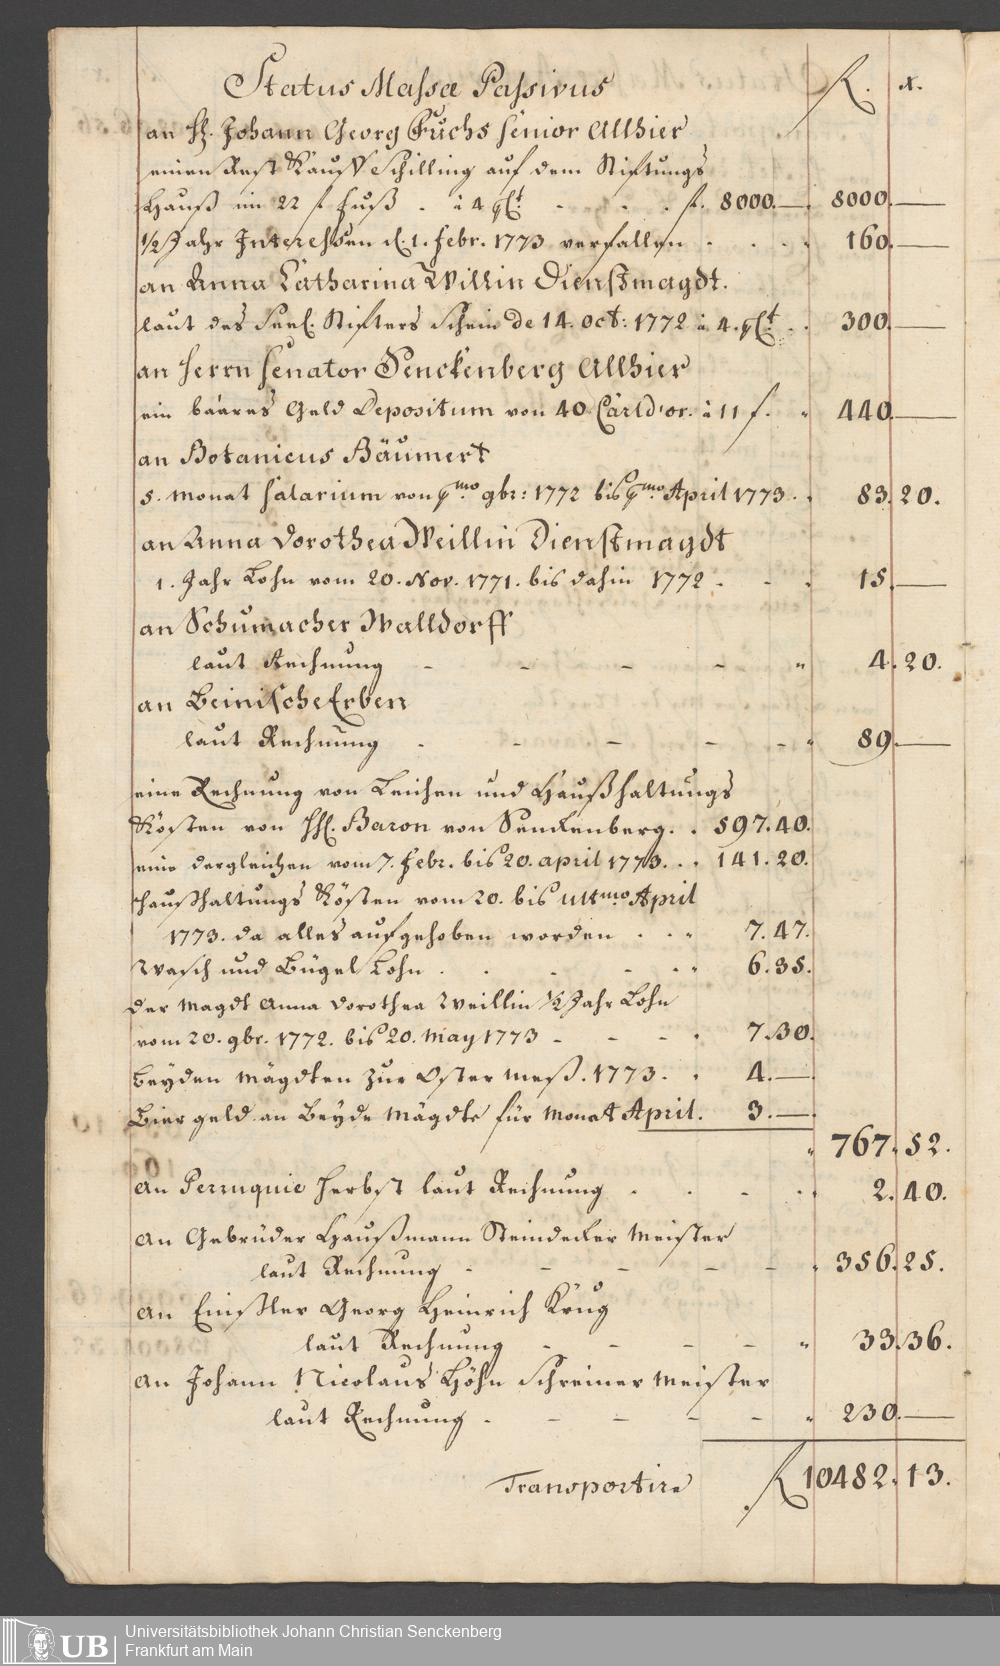 Status Massæ Passivus f. x.
an H. Johann Georg Fuchs Senior Allhier
einen Rest Kauff Schilling auf dem Stiftungs
Hauß im 22 f fuß . à 4 pCt. - - . f. 8000.— . 8000.—
1/2 Jahr Interessen d. 1. Febr. 1773 verfallen . . . . 160.—
an Anna Catharina Willin Dienstmagdt.
laut des Seel. Stifters Schein de 14. Oct: 1772 à 4. pCt. . . 300.—
an Herrn Senator Senckenberg Allhier
ein baares Geld Depositum von 40 Carld'or. à 11 f. . 440.—
an Botanicus Bäumert
5. Monat Salarium von pmo 9br: 1772 bis pmo April 1773. . 83.20.
an Anna Dorothea Weillin Dienstmagdt
1. Jahr Lohn vom 20. Nov. 1771. bis dahin 1772 . - . 15.—
an Schumacher Walldorff
laut Rechnung - - - - " 4.20.
an Beinische Erben
laut Rechnung . - - - - " 89.—
eine Rechnung von Leichen und Haußhaltungs
Kösten von HE. Baron von Senckenberg. . 597.40.
eine dergleichen vom 7. Febr. bis 20. April 1773. . . 141.20.
Haußhaltungs Kösten vom 20. bis ultmo April
1773. da alles aufgehoben worden . . " 7.47.
Wasch und Bügel Lohn . . - - . " 6.35.
der Magdt Anna Dorothea Weillin 1/2 Jahr Lohn
vom 20. 9br. 1772. bis 20. May 1773 - - - . 7.30.
Beyden Mägdten zur Oster Meß. 1773. . 4.—
Bier geld an Beyde Mägdte für Monat April. 3.—
" 767.52.
an Perruquie Herbst laut Rechnung . . - . " 2.40.
an Gebrüder Haußmann Steindecker Meister
laut Rechnung - - - - - " 356.25.
an Georg Heinrich Krug
laut Rechnung - - - - " 33.36.
an Johann Nicolaus Höhn Schreiner Meister
laut Rechnung . - - - - " 230.—
Transportire f. 10482.13.
UB Universitätsbibliothek Johann Christian Senckenberg
Frankfurt am Main